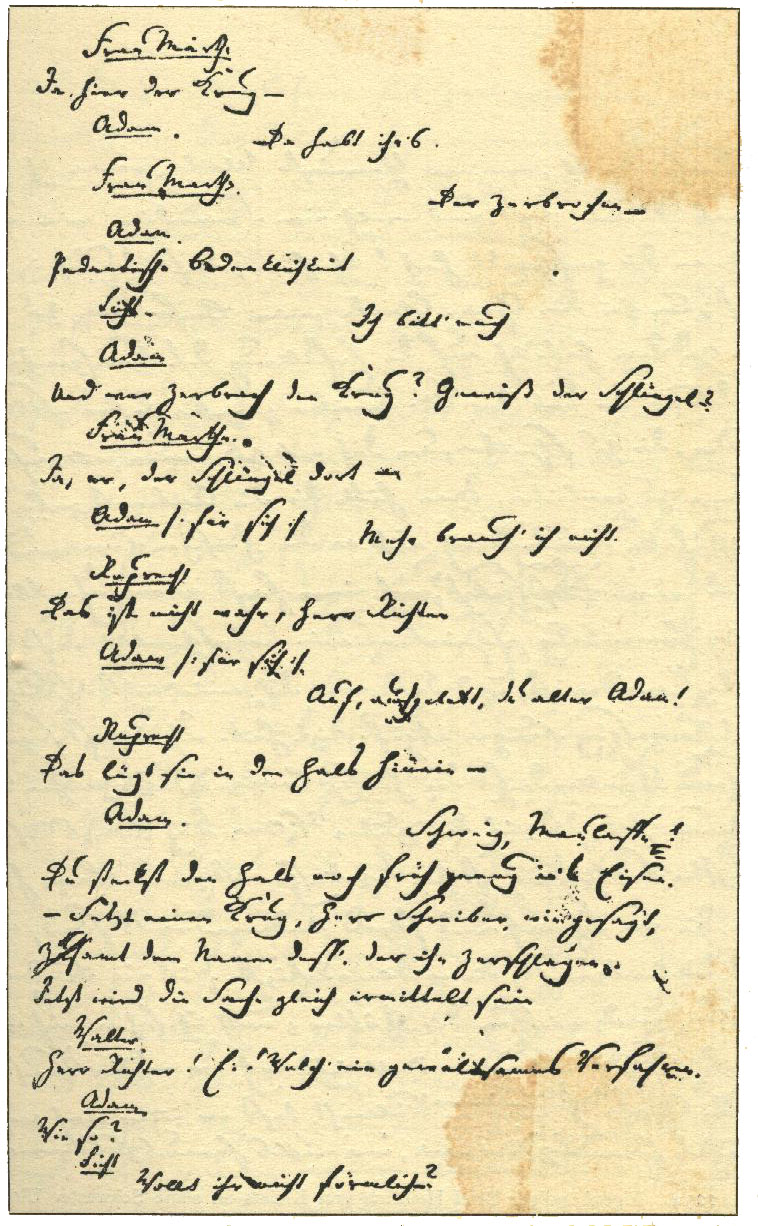 Frau Marthe
Ja. hier der Krug—
Adam.
Da habt ihr's.
Frau Marthe.
Der zerbrochen—
Adam.
Pedantische Bedenklichkeit
Licht.
Ich bitt' euch
Adam
Und wer zerbrach den Krug? Gewiß der Schlingel?
Frau Marthe.
Ja, er, der Schlingel dort —
Adam /: für sich :/
Mehr brauch' ich nicht.
Ruprecht
Das ist nicht wahr, Herr Richter
Adam /: für sich :/.
Auf, aufgelebt, du alter Adam!
Ruprecht
Das lügt sie in den Hals hinein —
Adam.
Schweig, Maulaffe!
Du steckst den Hals noch früh genug ins Eisen.
— Setzt einen Krug, Herr Schreiber, wie gesagt,
Zusamt dem Namen dess', der ihn zerschlagen.
Jetzt wird die Sache gleich ermittelt sein
Walter.
Herr Richter! Ei! Welch' ein gewaltsames Verfahren.
Adam
Wie so?
Licht
Wollt ihr nicht förmlich?